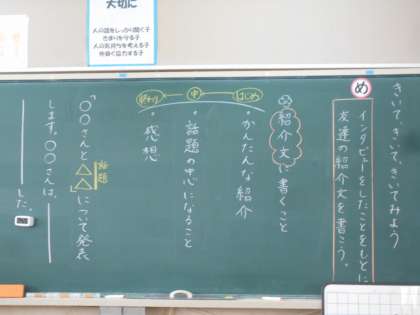 大切に
人の話をしっかり聞く子
きまりを守る子
人の気持ちを考える子
仲良く協力する子
きいて、きいて、きいてみよう
め
インタビューをしたことをもとに
友達の紹介文を書こう。
紹介文に書くこと
はじめ
中
終わり
・かんたんな紹介
・話題の中心になること
・感想
「○○さんと△△」について発表
話題
します。○○さんは、
した。